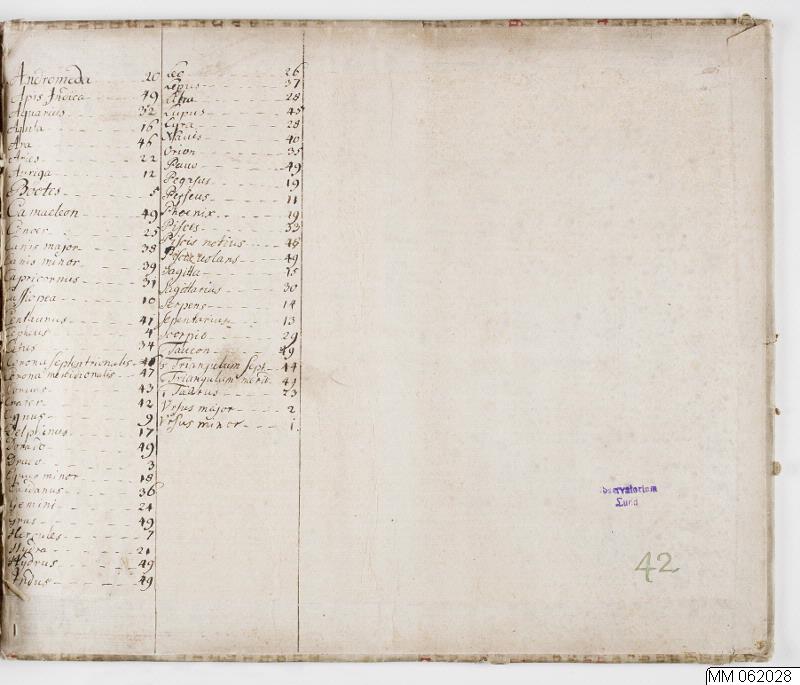 Andromeda 20
Apis Indica 49
Aquarius 32
Aquila 16
Ara 46
Aries 22
Auriga 12
Bootes 5
Camaeleon 49
Cancer 25
Canis major 38
Canis minor 39
Capricornus 31
Cassiopea 10
Centaurus 41
Cepheus 4
Cetus 34
Corona septentrionalis
Corona meridionalis 47
Corvus 43
Crater 42
Cygnus 9
Delphinus 17
Dorado 49
Draco 3
Equus minor 18
Eridanus 36
Gemini 24
Grus 49
Hercules 7
Hydra 21
Hydrus 49
Indus 49
Leo 26
Lepus 37
Libra 28
Lupus 45
Lyra 28
Navis 40
Orion 35
Pavo 49
Pegasus 19
Perseus 11
Phoenix 19
Pisces 33
Piscis notius 48
Piscis volans 49
Sagitta 15
Sagittarius 30
Serpens 14
Serpentarius 13
Scorpio 29
Taucon 49
Triangulum Sept. 44
Triangulum merid. 49
Taurus 23
Ursus major 2
Ursus minor 1
Observatorium
Lund
42
MM 062028